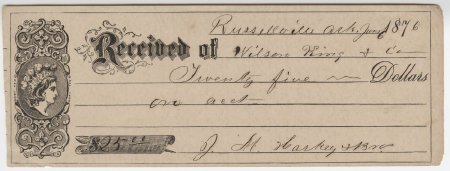 Russellville Ark Jany 6 1876
Received of Wilson King & Co
Twenty five Dollars
on acct
$25.00 J. H. Harkey & Bro